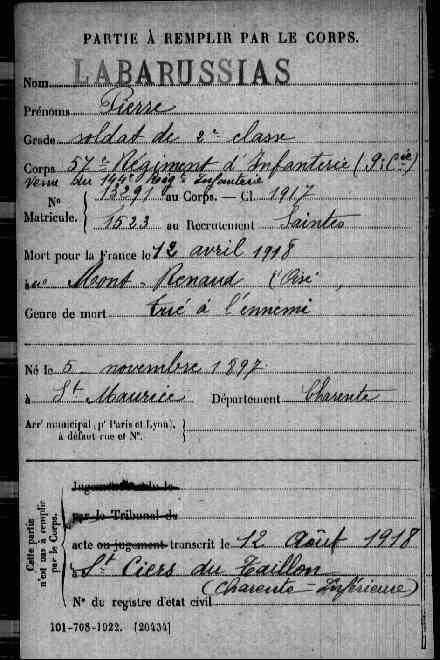 PARTIE À REMPLIR PAR LE CORPS.
Nom LABARUSSIAS
Prénoms Pierre
Grade soldat de 2e classe
Corps 57e Régiment d'Infanterie (9e Cie)
Venu du 144e Régt Infanterie
No Matricule. { 13291 au Corps. — Cl. 1917
1523 au Recrutement Saintes
Mort pour la France le 12 avril 1918
à au Mont-Renaud (Oise)
Genre de mort tué à l'ennemi
Né le 5 novembre 1897
à St Maurice Département Charente
Arrt municipal (pr Paris et Lyon), à défaut rue et No. }
Cette partie n'est pas à remplir par le Corps.
Jugement rendu le
par le Tribunal de
acte ou jugement transcrit le 12 Août 1918
à St Ciers du Taillon
(Charente-Inférieure)
No du registre d'état civil
101-708-1922. [20434]